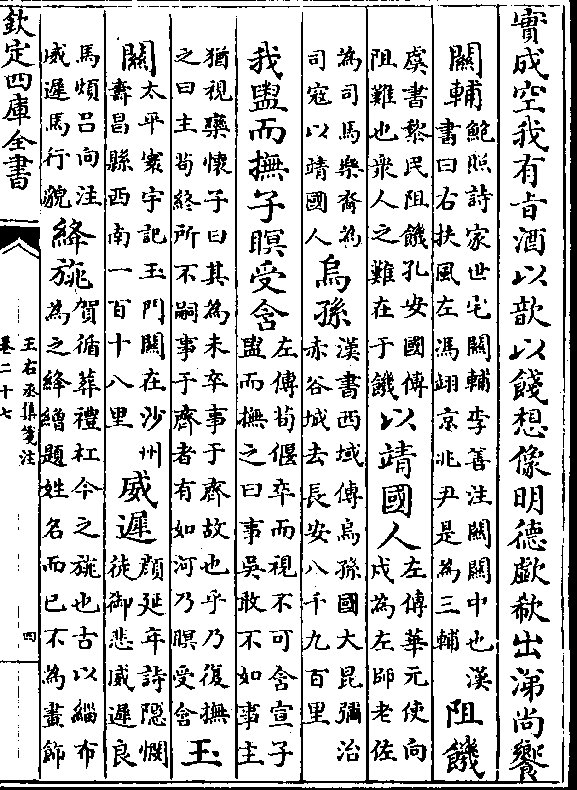 實成空我有㫖酒以歆以餞想像明德歔欷出涕尚饗
關輔鮑照詩家世宅關輔李善注關關中也漢
書曰右扶風左馮翊京兆尹是為三輔阻饑
虞書黎民阻饑孔安國傳
阻難也衆人之難在于饑以靖國人左傳華元使向
戍為左師老佐
為司馬樂裔為
司寇以靖國人烏孫漢書西域傳烏孫國大昆彌治
赤谷城去長安八千九百里
我盥而撫子瞑受含左傳荀偃卒而視不可含宣子
盥而撫之曰事吳敢不如事主
猶視欒懷子曰其為未卒事于齊故也乎乃復撫
之曰主荀終所不嗣事于齊者有如河乃瞑受含玉
關太平寰宇記玉門關在沙州
壽昌縣西南一百十八里威遲顔延年詩隱憫
徒御悲威遲良
馬煩吕向注
威遲馬行貌絳旐賀循葬禮杠今之旐也古以緇布
為之絳繒題姓名而已不為畫飾
欽定四庫全書
王右丞集箋注
卷二十七
四